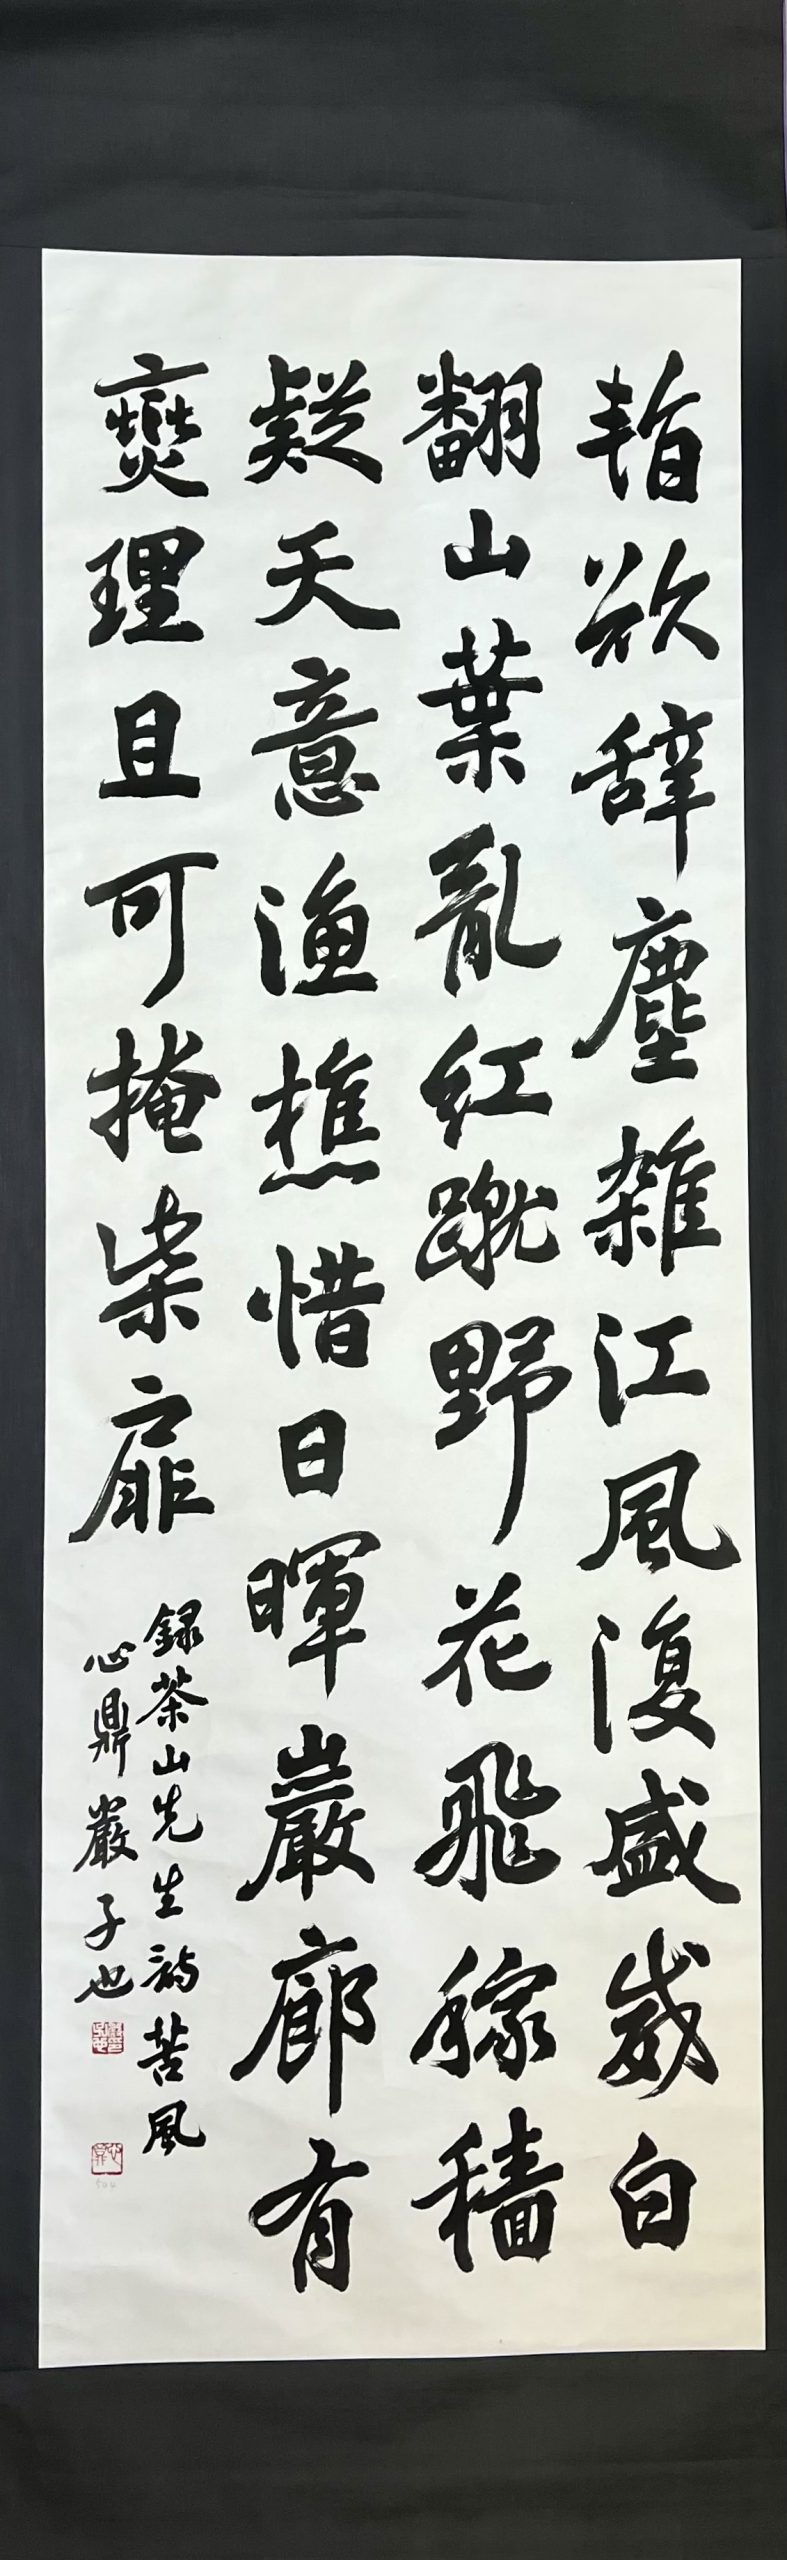 暫欲辭塵雜江風復盛威白
翻山葉亂紅蹴野花飛稼穡
疑天意漁樵惜日暉巖廊有
燮理且可掩柴扉
録茶山先生詩苦風
心鼎巖子也
504